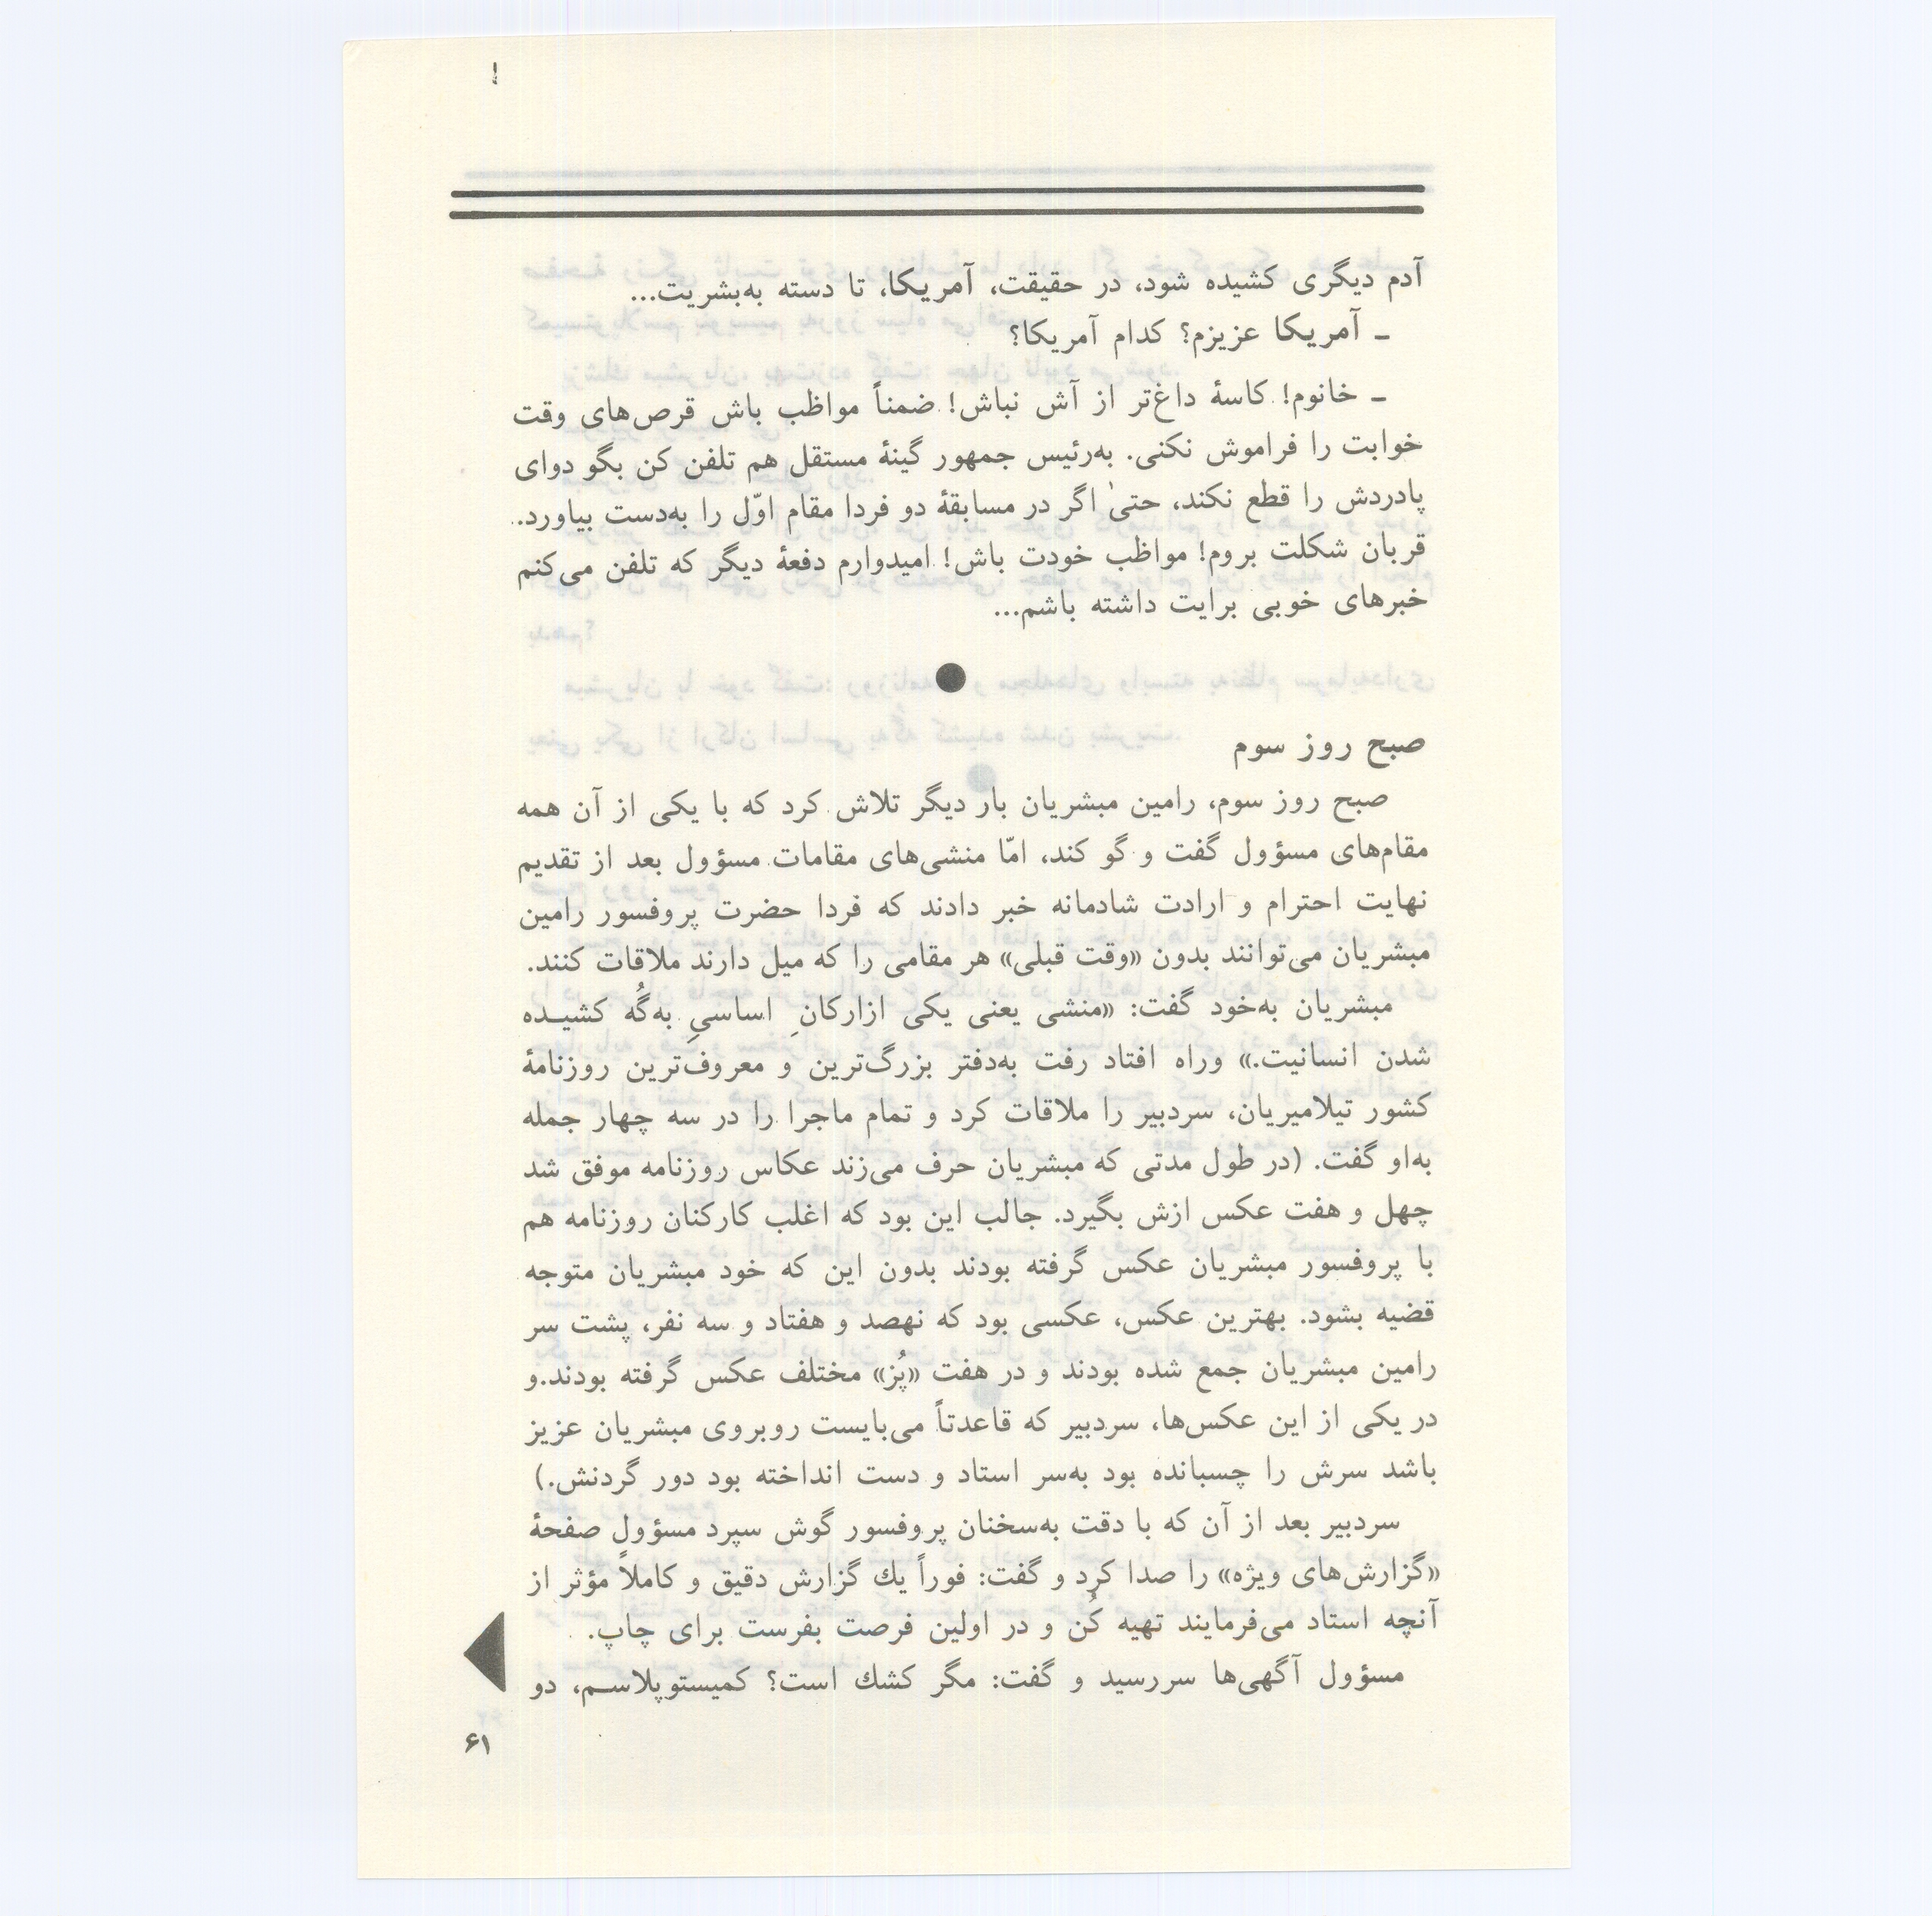 آدم دیگری کشیده شود، در حقیقت، آمریکا، تا دسته به‌بشریت...
ـ آمریکا عزیزم؟ کدام آمریکا؟
ـ خانوم! کاسهٔ داغ‌تر از آش نباش! ضمناً مواظب باش قرص‌های وقت
خوابت را فراموش نکنی. به‌رئیس جمهور گینهٔ مستقل هم تلفن کن بگو دوای
پادردش را قطع نکند، حتیٰ اگر در مسابقهٔ دو فردا مقام اوّل را به‌دست بیاورد.
قربان شکلت بروم! مواظب خودت باش! امیدوارم دفعهٔ دیگر که تلفن می‌کنم
خبرهای خوبی برایت داشته باشم...
●
صبح روز سوم
صبح روز سوم، رامین مبشریان بار دیگر تلاش کرد که با یکی از آن همه
مقام‌های مسؤول گفت و گو کند، امّا منشی‌های مقامات مسؤول بعد از تقدیم
نهایت احترام و ارادت شادمانه خبر دادند که فردا حضرت پروفسور رامین
مبشریان می‌توانند بدون «وقت قبلی» هر مقامی را که میل دارند ملاقات کنند.
مبشریان به‌خود گفت: «منشی یعنی یکی ازارکانِ اساسیِ به‌گُه کشیـده
شدن انسانیت.» وراه افتاد رفت به‌دفتر بزرگ‌ترین و معروف‌ترین روزنامهٔ
کشور تیلامیریان، سردبیر را ملاقات کرد و تمام ماجرا را در سه چهار جمله
به‌او گفت. (در طول مدتی که مبشریان حرف می‌زند عکاس روزنامه موفق شد
چهل و هفت عکس ازش بگیرد. جالب این بود که اغلب کارکنان روزنامه هم
با پروفسور مبشریان عکس گرفته بودند بدون این که خود مبشریان متوجه
قضیه بشود. بهترین عکس، عکسی بود که نهصد و هفتاد و سه نفر، پشت سر
رامین مبشریان جمع شده بودند و در هفت «پُز» مختلف عکس گرفته بودند.و
در یکی از این عکس‌ها، سردبیر که قاعدتاً می‌بایست روبروی مبشریان عزیز
باشد سرش را چسبانده بود به‌سر استاد و دست انداخته بود دور گردنش.)
سردبیر بعد از آن که با دقت به‌سخنان پروفسور گوش سپرد مسؤول صفحهٔ
«گزارش‌های ویژه» را صدا کرد و گفت: فوراً یك گزارش دقیق و کاملاً مؤثر از
آنچه استاد می‌فرمایند تهیه کُن و در اولین فرصت بفرست برای چاپ.
مسؤول آگهی‌ها سررسید و گفت: مگر کشك است؟ کمیستوپلاسـم، دو
۶۱